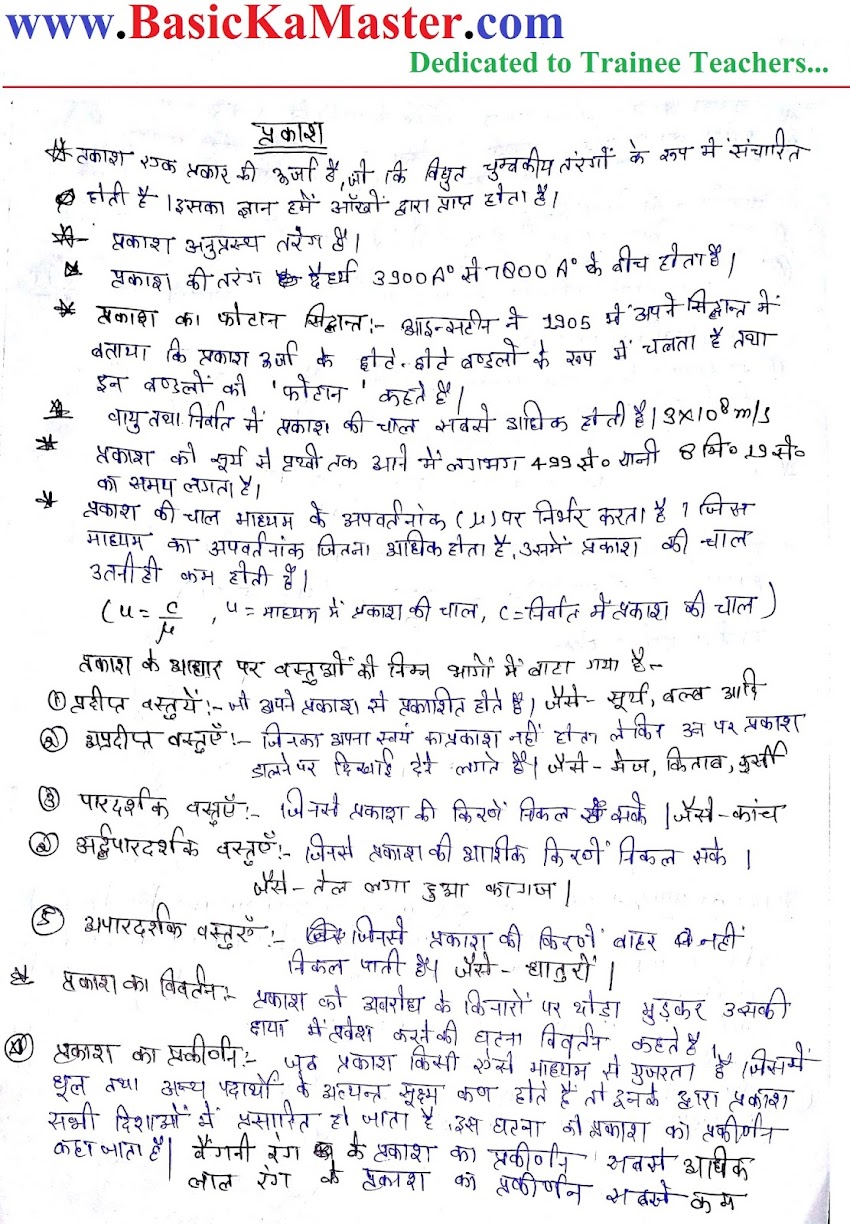 www.BasicKaMaster.com
Dedicated to Trainee Teachers...
प्रकाश
प्रकाश एक प्रकार की ऊर्जा है, जो कि विद्युत चुम्बकीय तरंगों के रूप में संचारित
होती है। इसका ज्ञान हमें आँखों द्वारा प्राप्त होता है।
प्रकाश अनुप्रस्थ तरंग है।
प्रकाश की तरंग दैर्ध्य 3900A° से 7800A° के बीच होता है।
प्रकाश का फोटान सिद्धान्त:- आइन्सटीन ने 1905 में अपने सिद्धान्त में
बताया कि प्रकाश ऊर्जा के छोटे-छोटे बण्डलो के रूप में चलता है तथा
इन बण्डलों को 'फोटान' कहते है।
वायु तथा निर्वात में प्रकाश की चाल सबसे अधिक होती है। 3×10⁸ m/s
प्रकाश को सूर्य से पृथ्वी तक आने में लगभग 499 से० यानी 8 मि० 19 से०
का समय लगता है।
प्रकाश की चाल माध्यम के अपवर्तनांक (μ) पर निर्भर करता है। जिस
माध्यम का अपवर्तनांक जितना अधिक होता है, उसमें प्रकाश की चाल
उतनी ही कम होती है।
(u = c/μ , u = माध्यम में प्रकाश की चाल, c = निर्वात में प्रकाश की चाल)
प्रकाश के आधार पर वस्तुओं को निम्न भागों में बाटा गया है-
① प्रदीप्त वस्तुयें:- जो अपने प्रकाश से प्रकाशित होते है। जैसे- सूर्य, बल्ब आदि
② अप्रदीप्त वस्तुएँ:- जिनका अपना स्वयं का प्रकाश नहीं होता, लेकिन उन पर प्रकाश
डालने पर दिखाई देने लगते है। जैसे- मेज, किताब, कुर्सी
③ पारदर्शक वस्तुएँ:- जिनसे प्रकाश की किरणें निकल सके। जैसे- कांच
② अर्द्धपारदर्शक वस्तुएँ:- जिनसे प्रकाश की आशिंक किरणें निकल सके।
जैसे- तेल लगा हुआ कागज।
⑤ अपारदर्शक वस्तुएँ:- जिनसे प्रकाश की किरणें बाहर नहीं
निकल पाती है। जैसे- धातुएँ।
प्रकाश का विवर्तन:- प्रकाश को अवरोध के किनारों पर थोडा मुड़कर उसकी
छाया में प्रवेश करने की घटना विवर्तन कहते है।
प्रकाश का प्रकीर्णन:- जब प्रकाश किसी ऐसे माध्यम से गुजरता है जिसमें
धूल तथा अन्य पदार्थो के अत्यन्त सूक्ष्म कण होते हैं तो इनके द्वारा प्रकाश
सभी दिशाओं में प्रसारित हो जाता है इस घटना को प्रकाश का प्रकीर्णन
कहा जाता है। बैंगनी रंग के प्रकाश का प्रकीर्णन सबसे अधिक
लाल रंग के प्रकाश का प्रकीर्णन सबसे कम